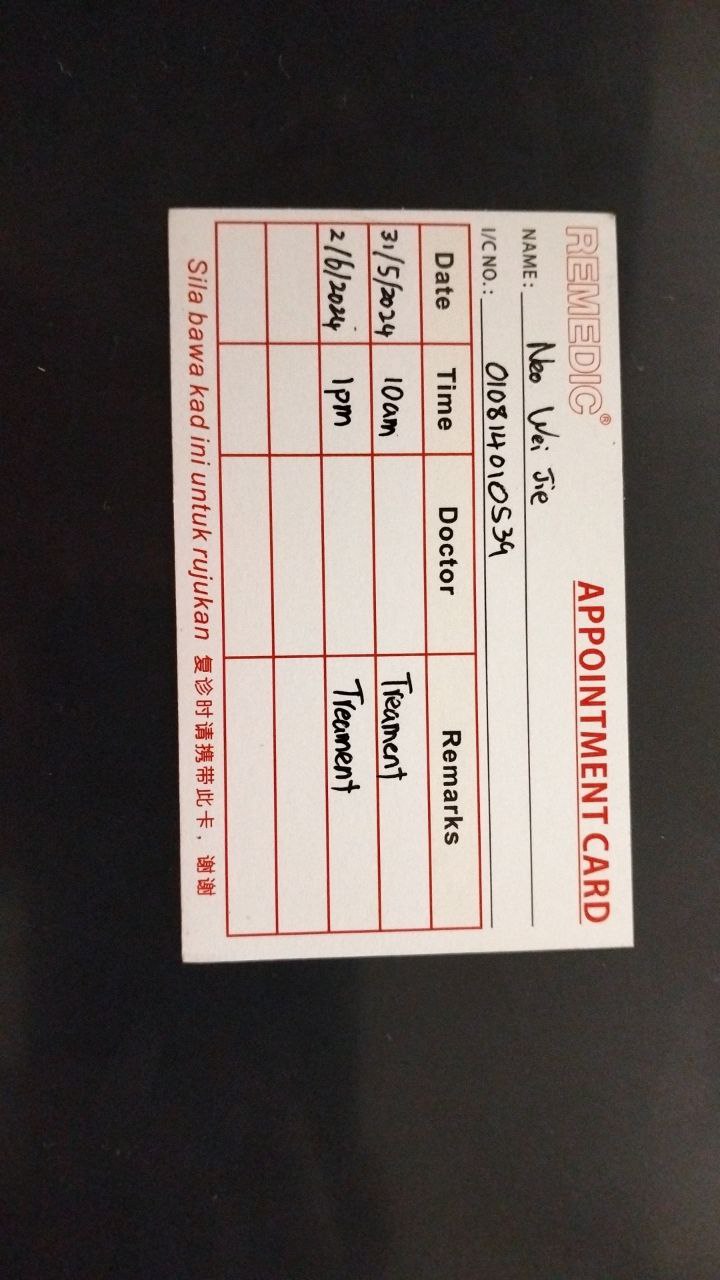 REMEDIC® APPOINTMENT CARD
NAME: Neo Wei Jie
I/C NO.: 010814010539
Date Time Doctor Remarks
31/5/2024 10am Treament
2/6/2024 1pm Treament
Sila bawa kad ini untuk rujukan 复诊时请携带此卡，谢谢